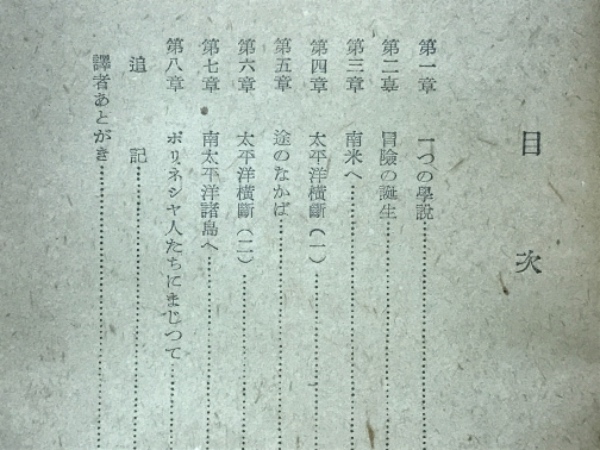 目次
第一章 一つの學説
第二章 冒險の誕生
第三章 南米へ
第四章 太平洋横斷(一)
第五章 途のなかば
第六章 太平洋横斷(二)
第七章 南太平洋諸島へ
第八章 ポリネシヤ人たちにまじつて
追記
譯者あとがき